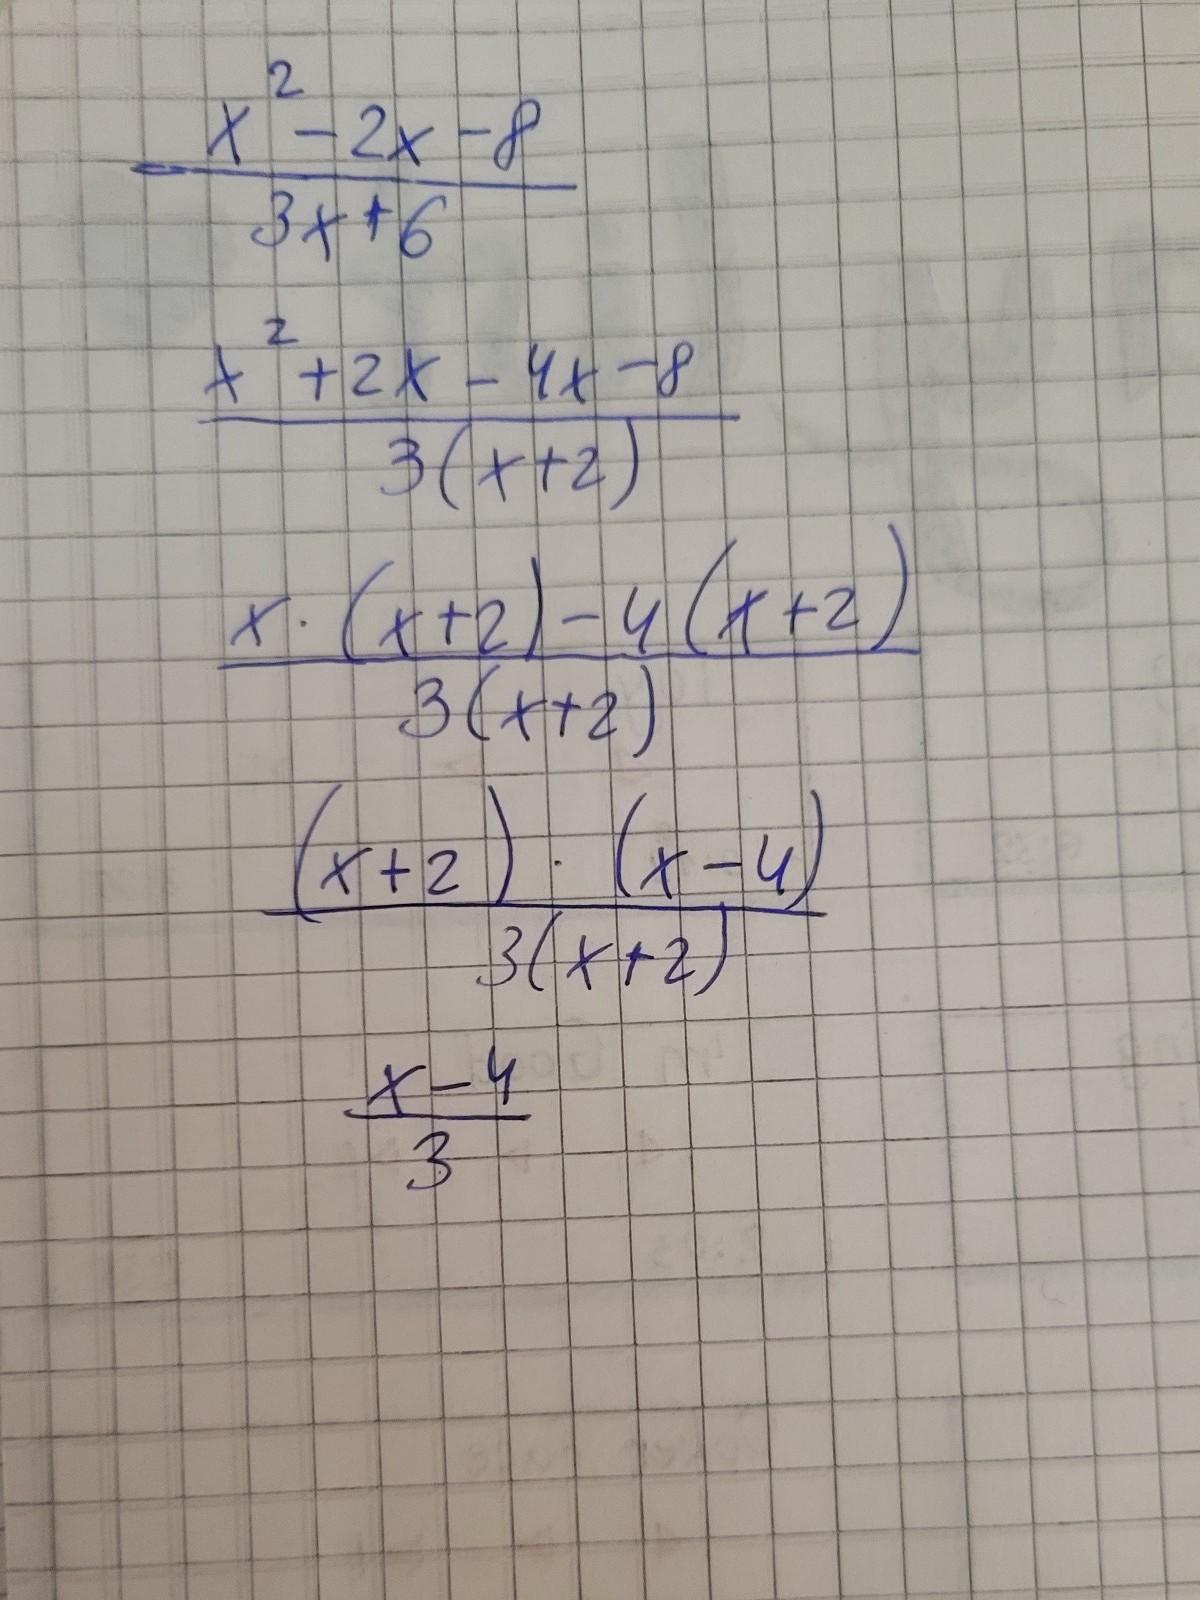 x² - 2x - 8
3x + 6
x² + 2x - 4x - 8
3(x+2)
x · (x+2) - 4(x+2)
3(x+2)
(x+2) · (x-4)
3(x+2)
x - 4
3